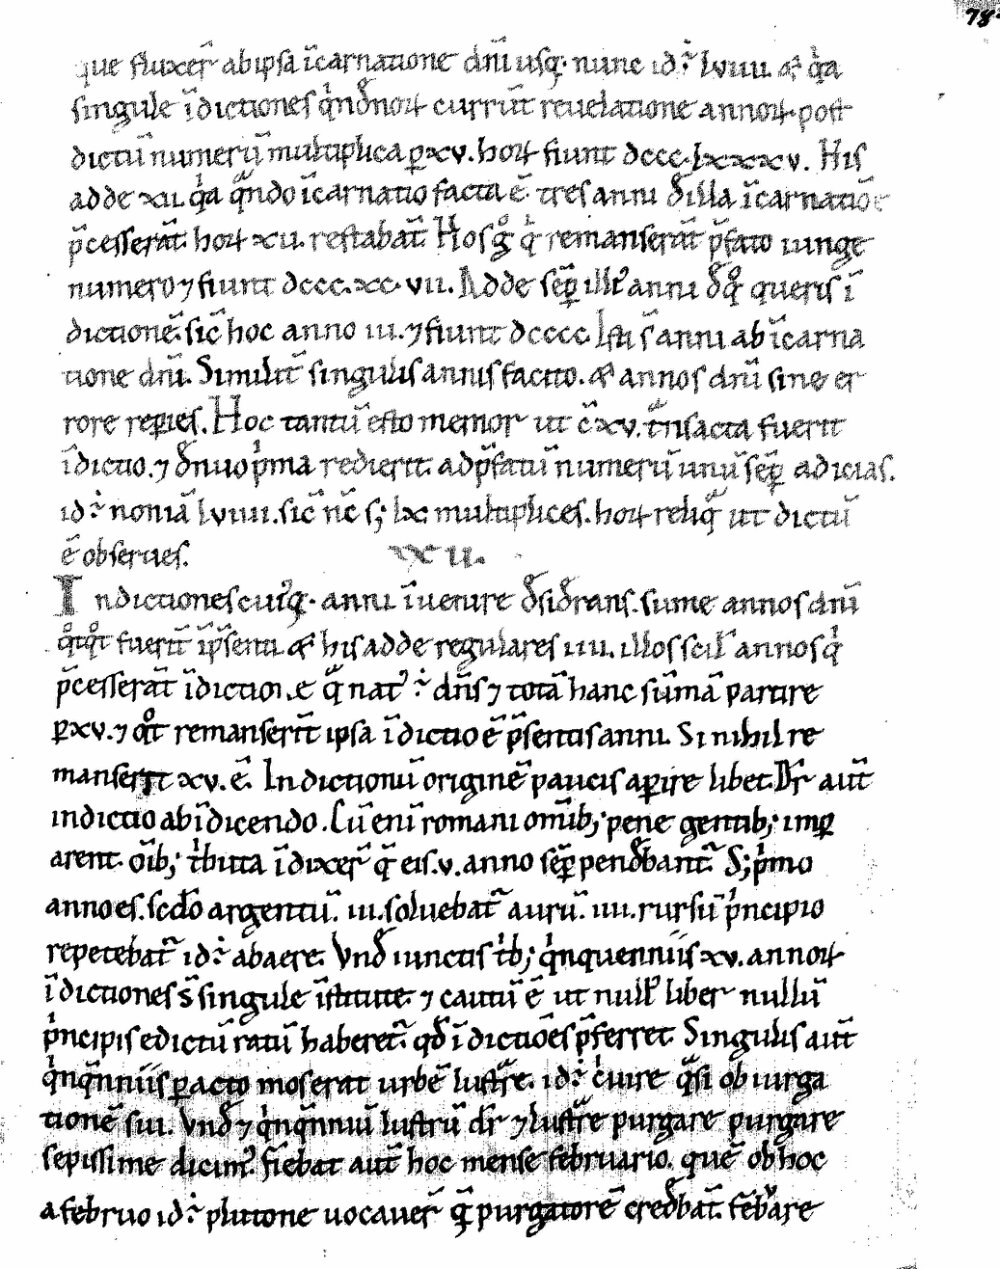 78
que fluxer̄ ab ipsa īcarnatione dn̄i usq; nunc id ÷ lviiii. & qͥa
singule īdictiones qͥndenoꝝ currūt reuelatione annoꝝ. post
dictū numerū multiplica ꝑ xv. hoꝝ fiunt dccc.lxxxv. His
adde xii. qͥa qᵃndo īcarnatio facta ē. tres anni de illa īcarnatiōe
p̄cesserāt. hoꝝ xii. restabāt. Hos gͦ qͥ remanserāt p̄fato iunge
numero ⁊ fiunt dccc.xc.vii. Adde sēꝑ illiꝰ anni de qͦ queris ī
dictionē. sic̄ hoc anno iii. ⁊ fiunt dcccc. Isti s̄ anni ab īcarna
tione dn̄i. Similit̄ singulis annis facito. & annos dn̄i sine er
rore reperies. Hoc tantū esto memor ut c̄ xv. trᵃnsacta fuerit
īdictio. ⁊ denuo pͥma redierit. ad p̄fatū numerū unū sēꝑ adicias.
id ÷ noniā lviiii. sic̄ nc̄ s; lx multiplices. hoꝝ reliqᵃ ut dictū
ē obserues. XXII.
Indictiones cuiꝰq; anni īuenire desiderans. sume annos dn̄i
qͦtqͦt fuerīt īp̄senti & his adde regulares iii. illos scil̄ annos qͥ
p̄cesserāt īdictione qᵃ natꝰ ÷ dn̄s ⁊ totā hanc sūmā partire
ꝑ xv. ⁊ qͦt remanserīt ipsa īdictio ē p̄sentis anni. Si nihil re
manserit xv. ē. Indictionū originē paucis aperire libet. Dr̄ aut̄
indictio ab īdicendo. Cū enī romani om̄ib; pene gentib; imꝑ
arent. oīb; tͥbuta īdixer̄ q̄ eis .v. anno sēꝑ pendebant̄. S; pͥmo
anno es. sc̄do argentū. iii. soluebat̄ aurū. iiii. rursū pͥncipio
repetebat̄ id ÷ ab aere. Vnde iunctis tͥb; qͥnquenniis xv. annoꝝ
īdictiones s̄ singule īstitute. ⁊ cautū ē ut nullꝰ liber nullū
pͥncipis edictū ratū haberet̄. qd̄ īdictiōes p̄ferret. Singulis aut̄
qͥnqᵃnniis ꝑacto mos erat urbē lustrᵃre. id ÷ cͥcuire qᵃsi ob iurga
tionē sui. Vnde ⁊ qͥnqᵃnniū lustrū dr̄ ⁊ lustrᵃre purgare purgare
sepissime dicimꝰ. fiebat aut̄ hoc mense februario. quē ob hoc
a februo id ÷ plutone uocauer̄ qᵃ purgatorē credebat̄. februare